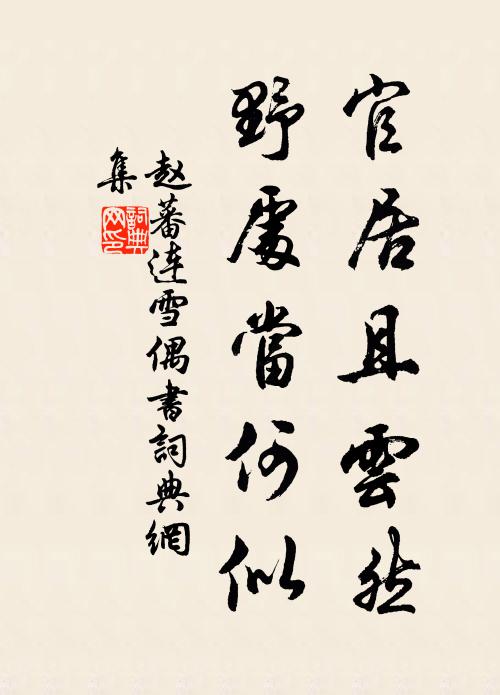 官居且雲然
野處當何似
赵蕃連雪偶書詞典網
集
詞典
网印